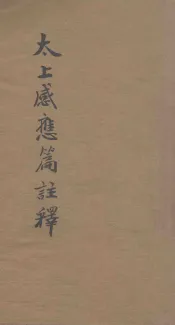 太上感應篇註釋